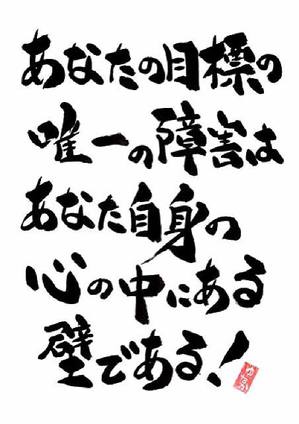 あなたの目標の
唯一の障害は
あなた自身の
心の中にある
壁である!